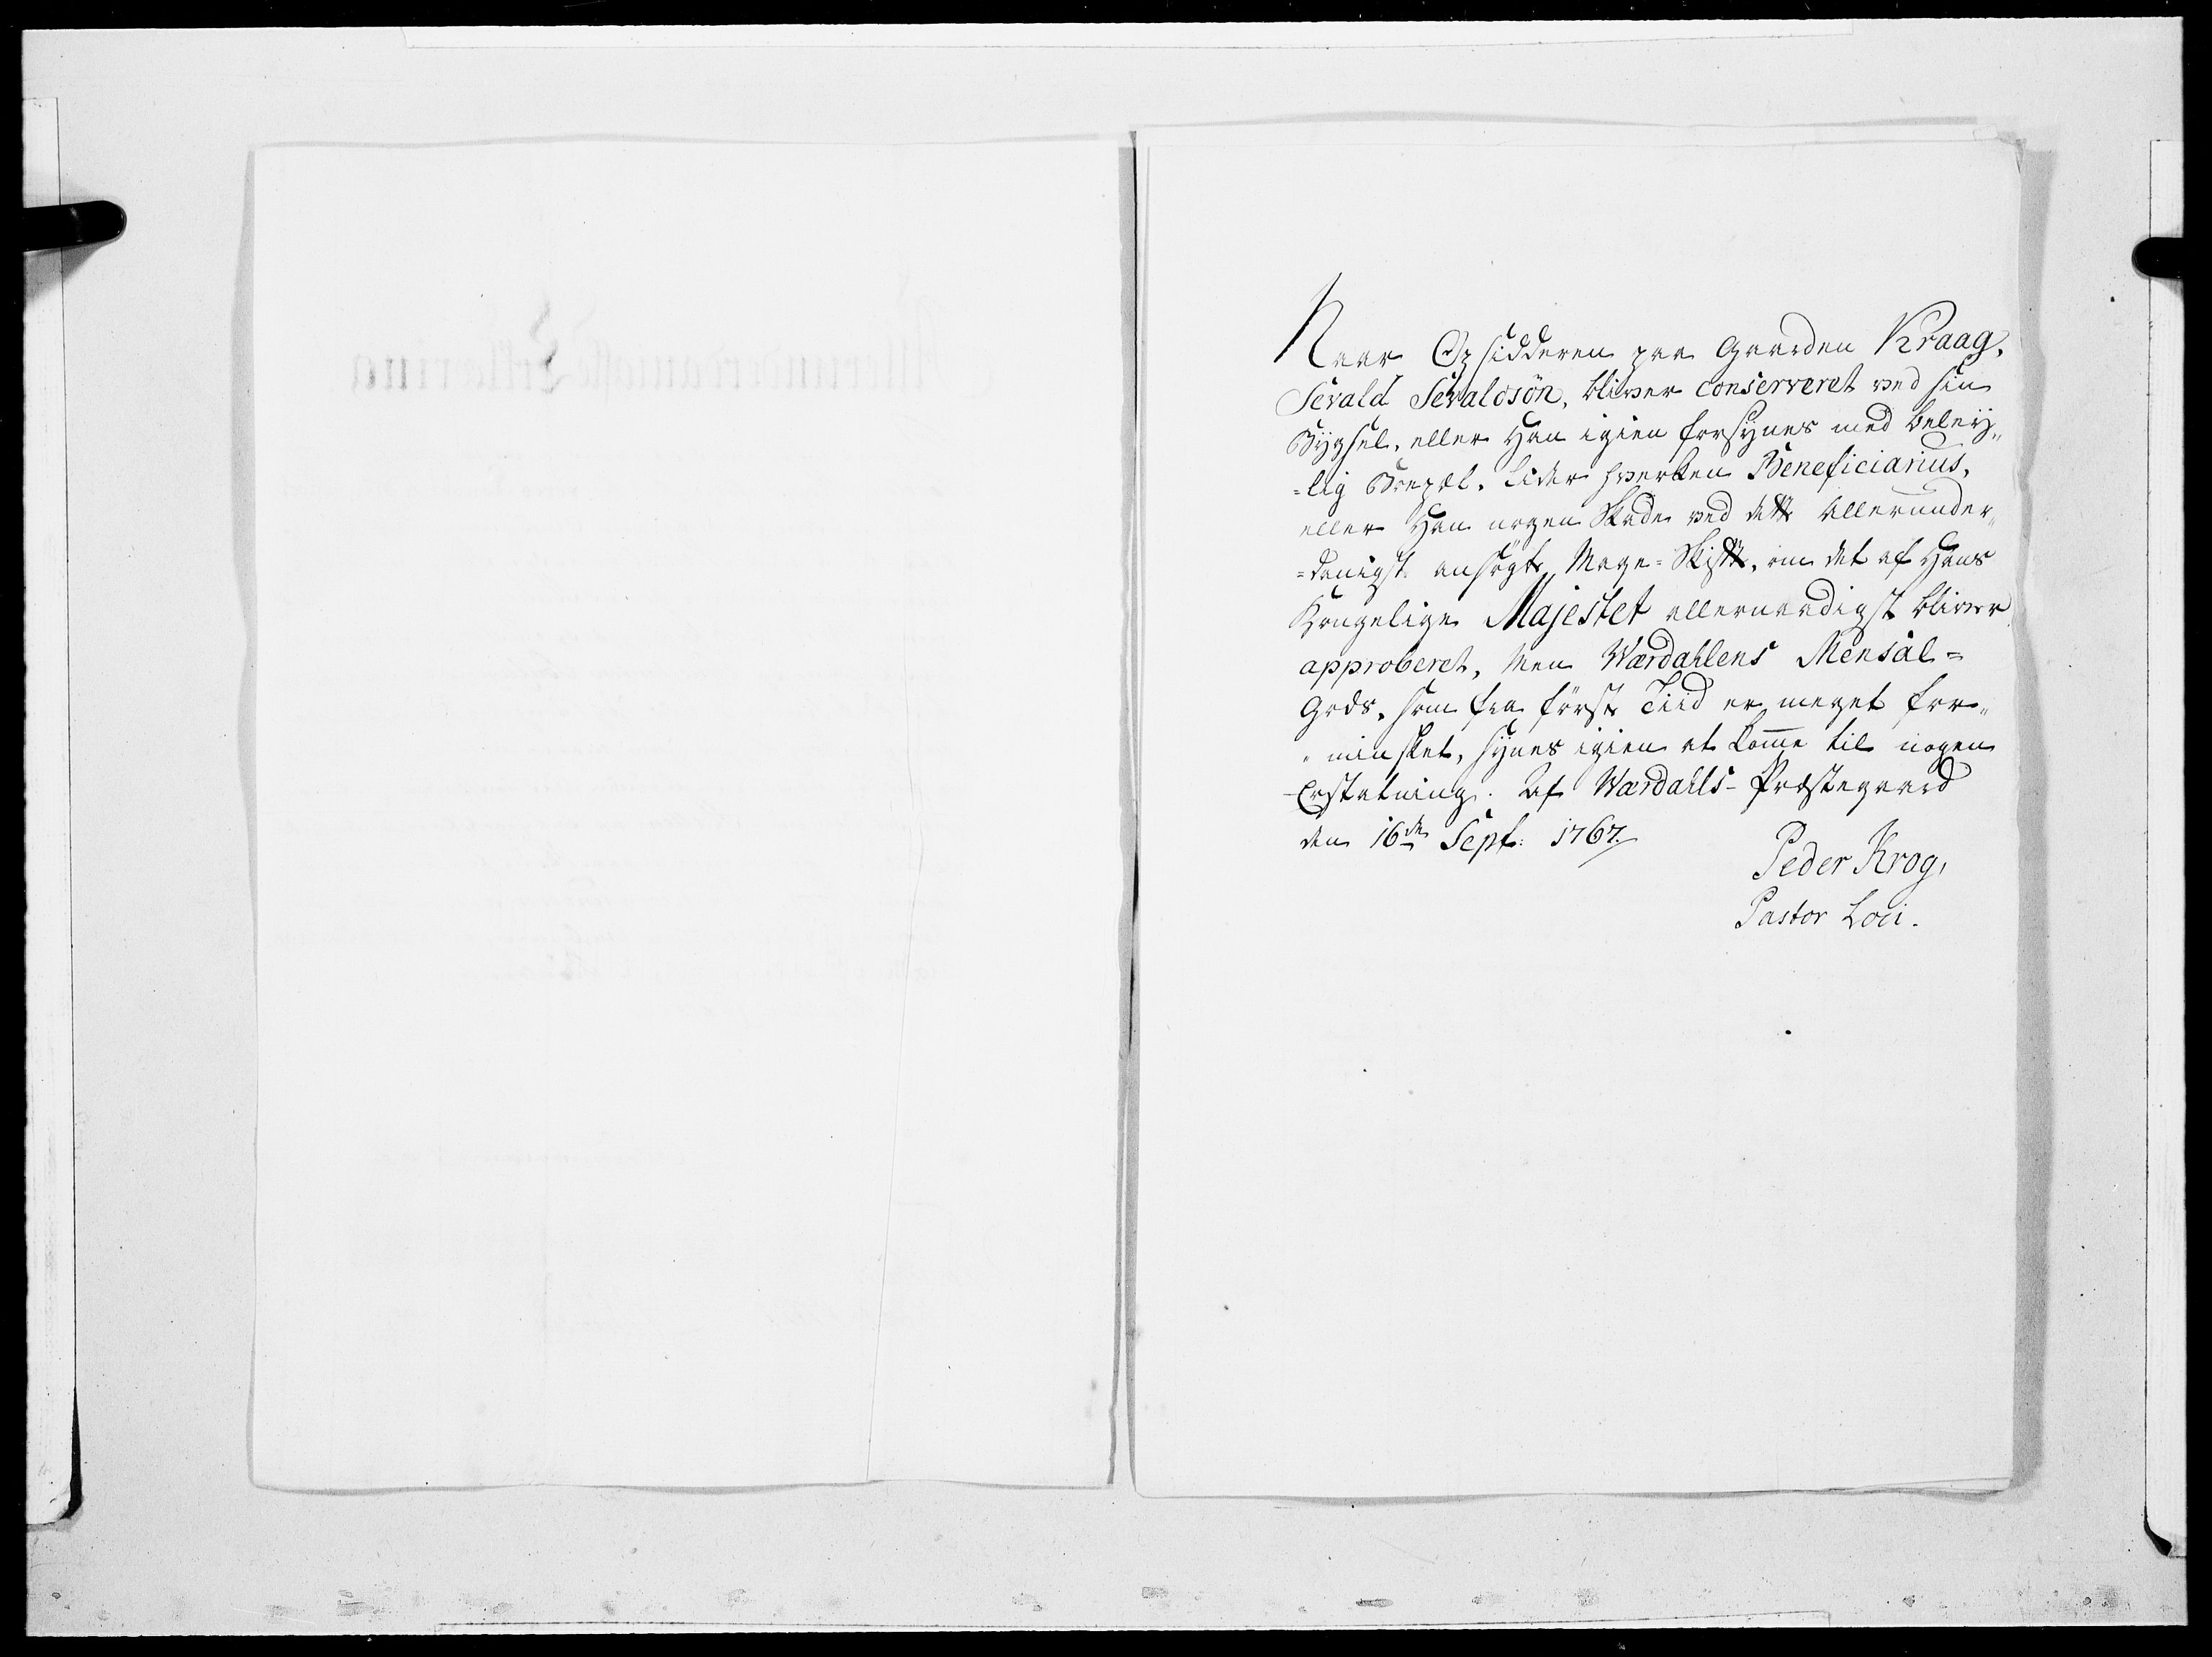 Naar Opsidderen paa Gaarden Kraag,
Sevald Sevaldsön, bliver conserveret ved sin
Bygsel, eller Han igien forsynes med beley„
=lig Bopæl, lider hverken Beneficiarius,
eller Han nogen Skade ved dette allerunder„
=danigst ansøgte Mage=Skifte, om det af Hans
Kongelige Majestet allernaadigst bliver
approberet, Men Wærdahlens Mensal=
Gods, som fra første Tiid er meget for„
„mindsket, synes igien at komme til nogen
Erstatning. Af Wærdahls-Præstegaard
den 16de Sept: 1767.
Peder Krog,
Pastor Loci.